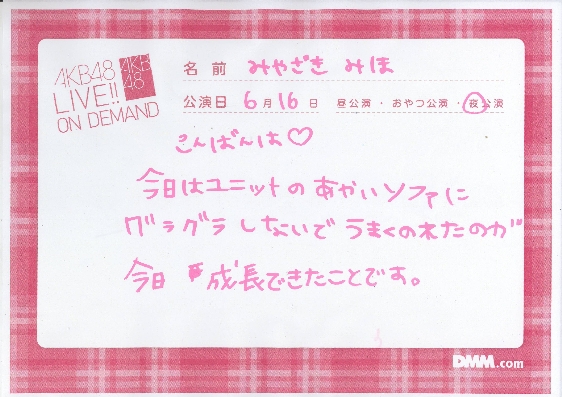 AKB48
LIVE!!
ON DEMAND
AKB
48
名前 みやざき みほ
公演日 6月16日 昼公演・おやつ公演・夜公演
こんばんは♡
今日はユニットのあかいソファに
グラグラしないでうまくのれたのが
今日 成長できたことです。
DMM.com